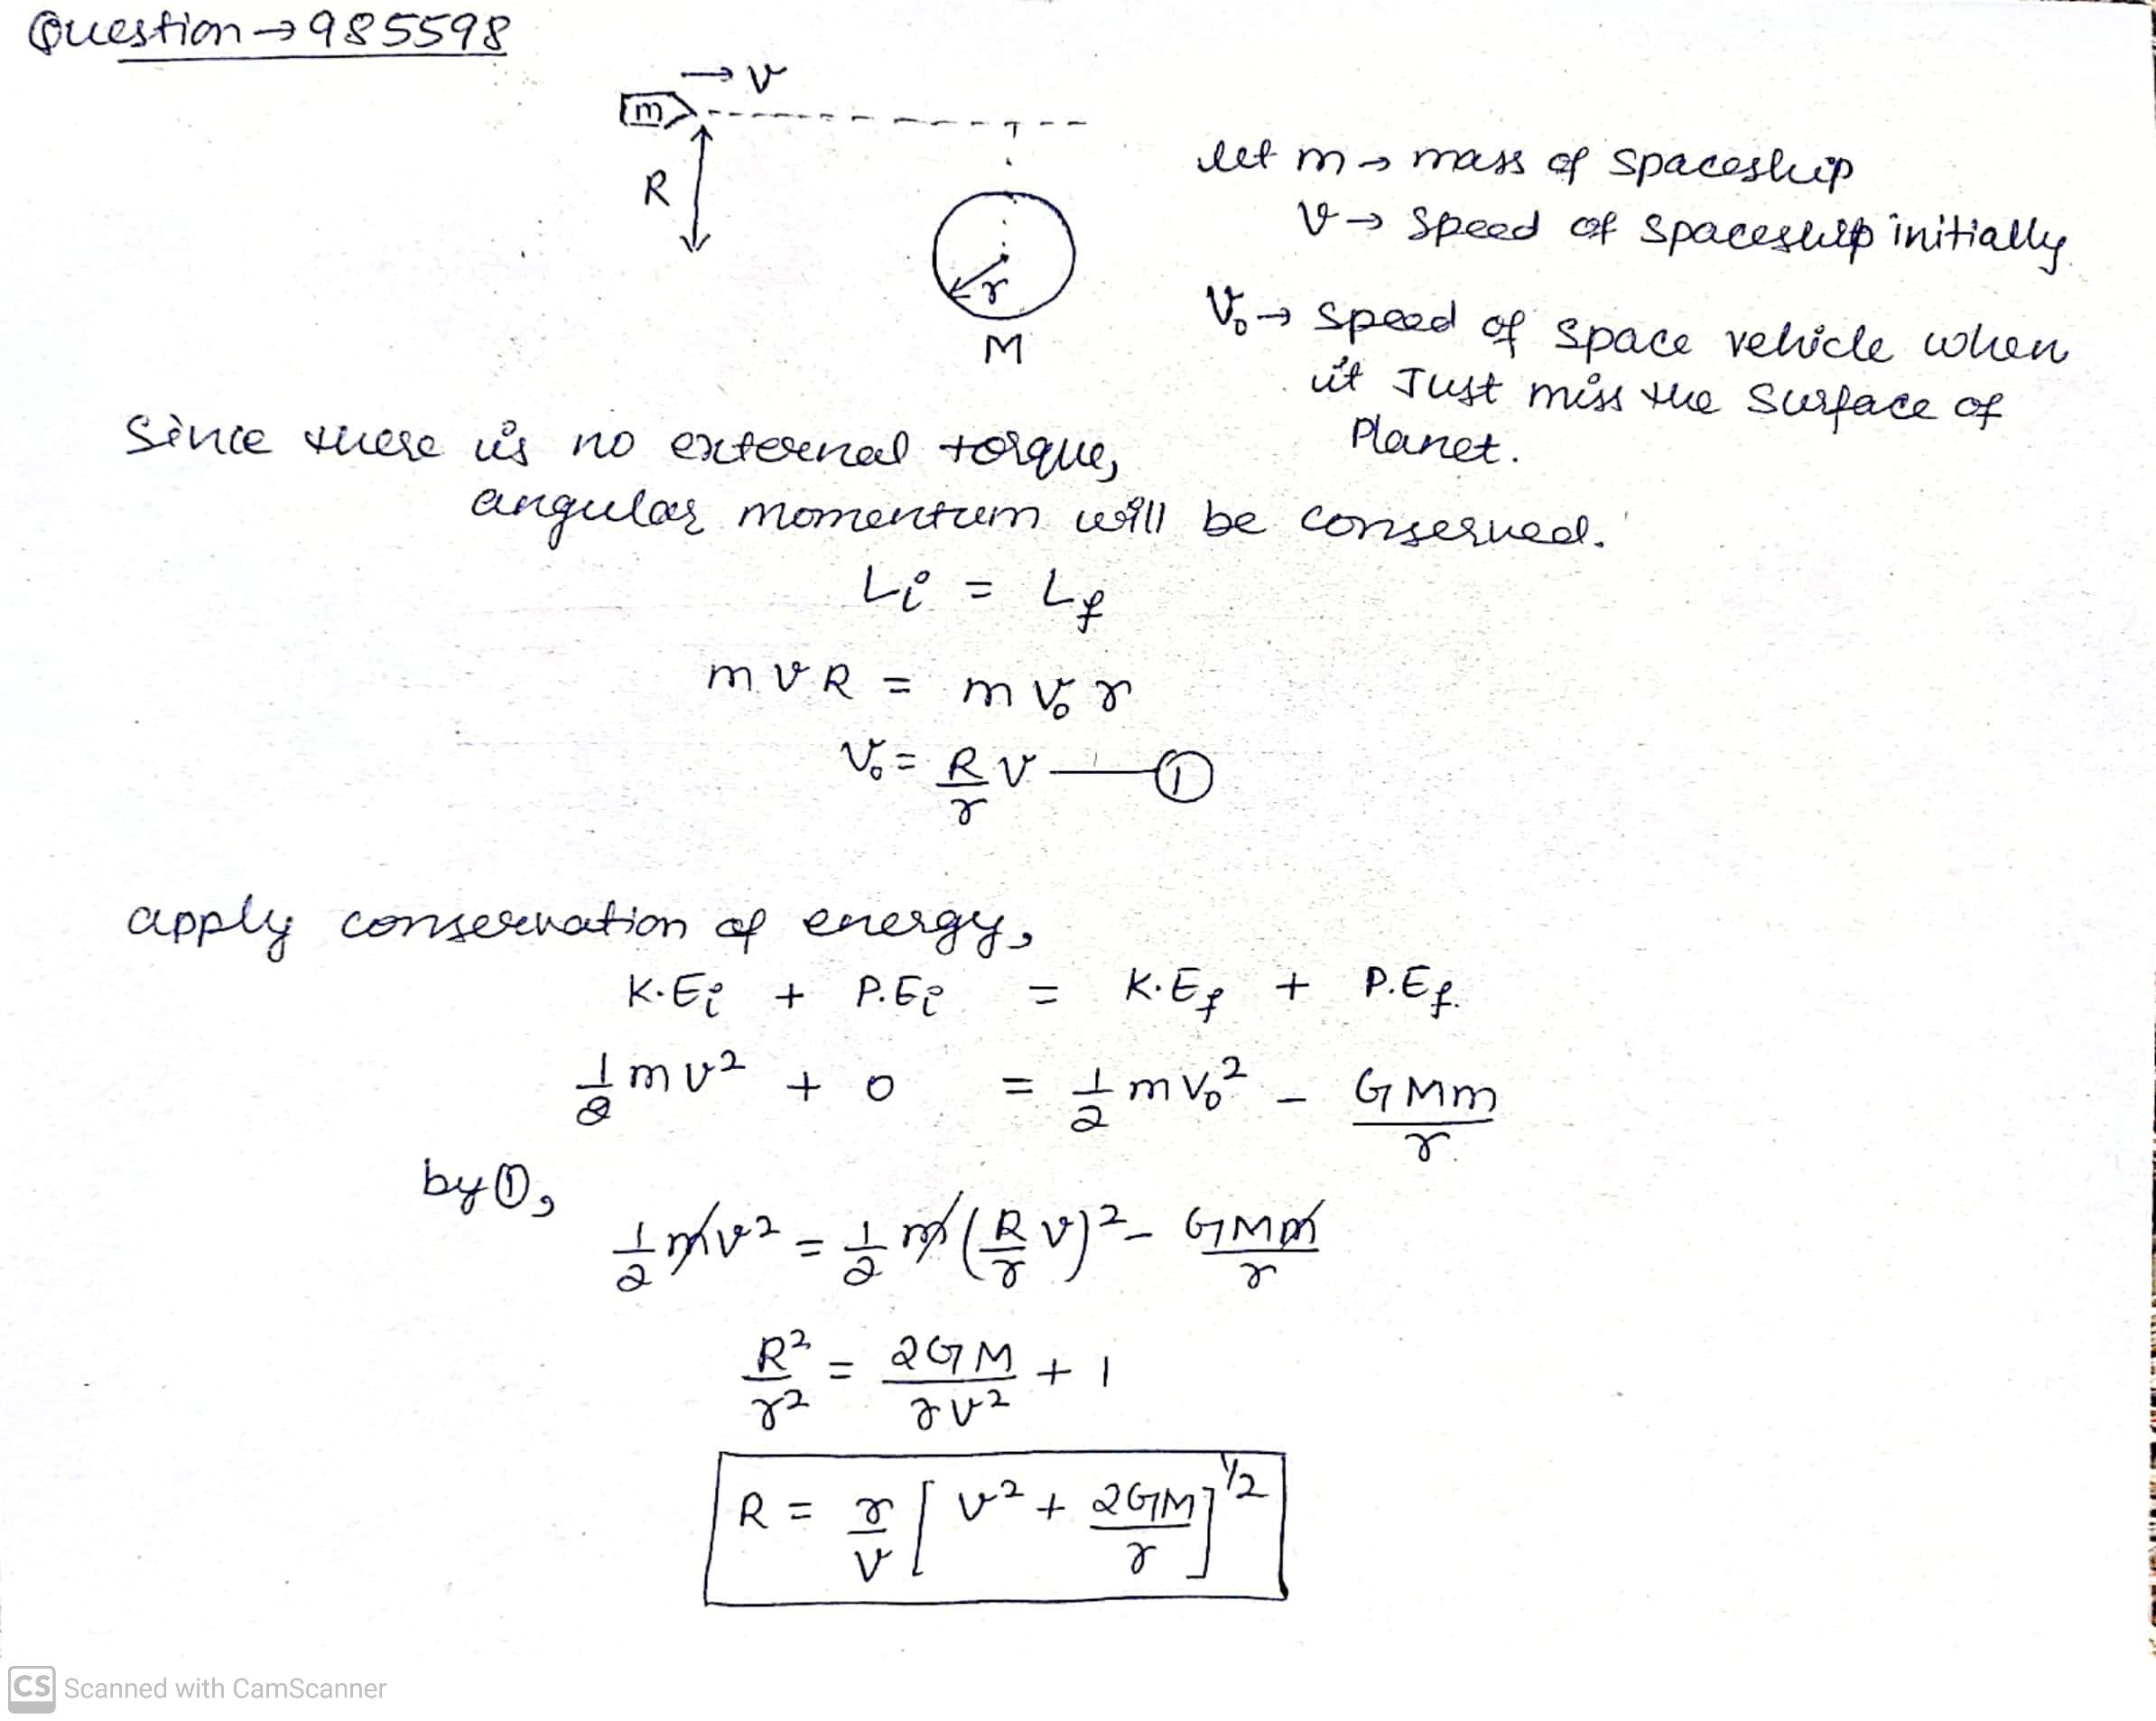 Question → 985598
→ v
m
R
r
M
let m → mass of spaceship
v → speed of spaceship initially.
V₀ → speed of space vehicle when
it Just miss the surface of
Planet.
Since there is no external torque,
angular momentum will be conserved.
Li = Lf
m v R = m v₀ r
V₀ = R/r v — ①
apply conservation of energy,
K.Ei + P.Ei = K.Ef + P.Ef.
1/2 m v² + 0 = 1/2 m v₀² - GMm/r
by ①,
1/2 m v² = 1/2 m (R/r v)² - GMm/r
R²/r² = 2GM/rv² + 1
R = r/v [v² + 2GM/r]^1/2
CS Scanned with CamScanner